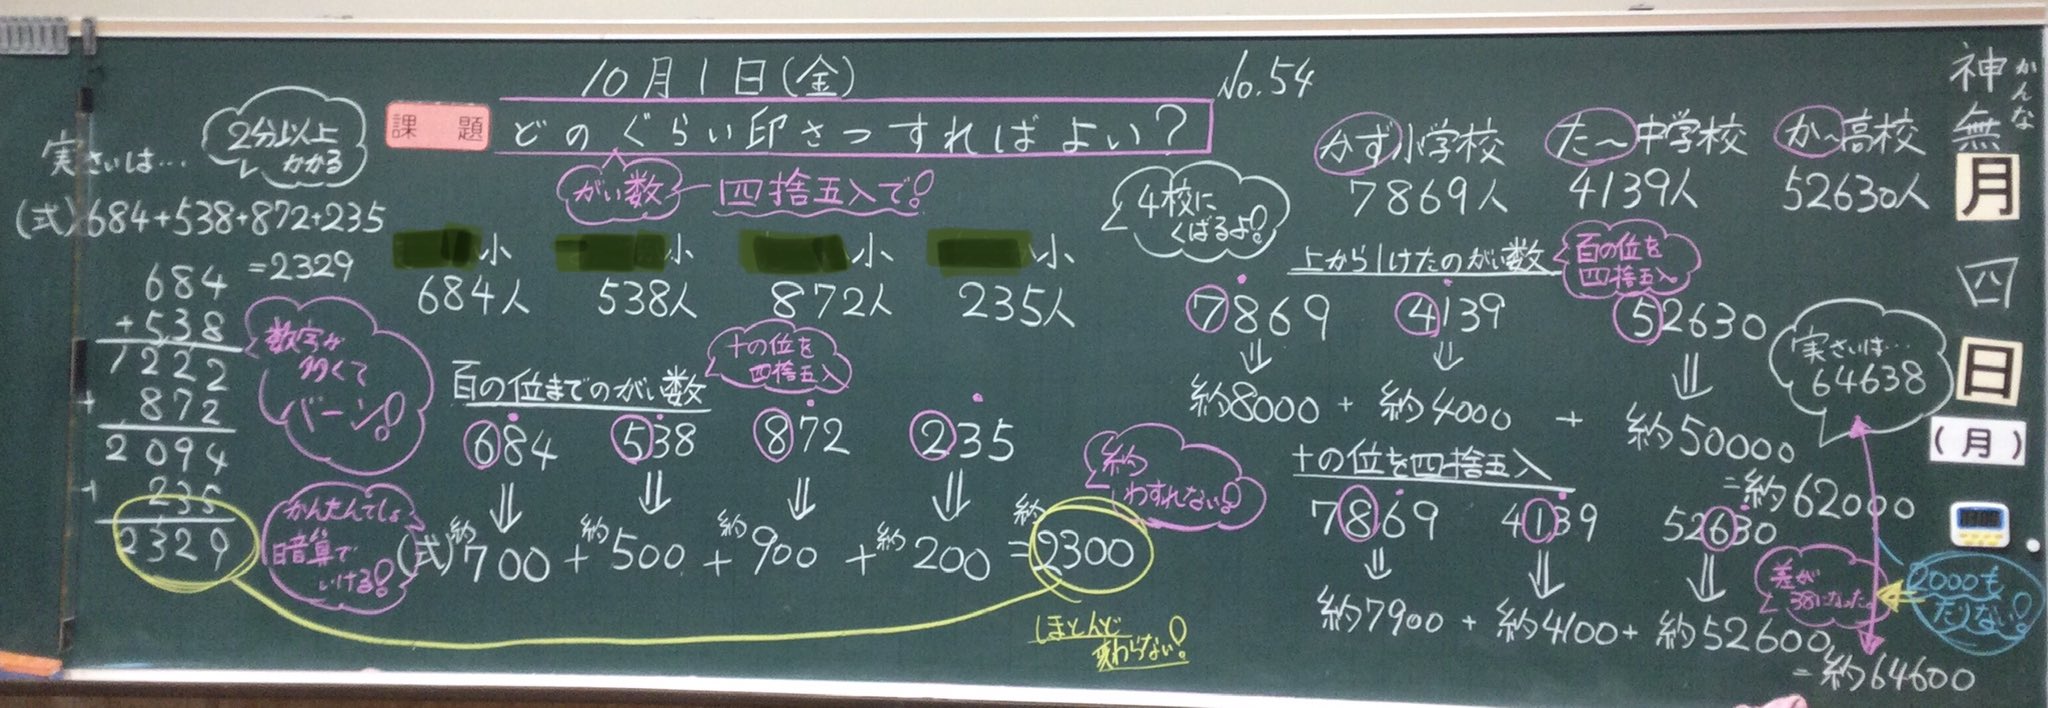 10月1日(金)
No.54
課題
どのぐらい印さつすればよい?
がい数
四捨五入で!
実さいは…
2分以上
かかる
(式)684+538+872+235
=2329
684
+538
1222
+ 872
2094
+ 235
2329
数字が
多くて
バーン!
かんたんでしょ
暗算で
いける!
小
684人
小
538人
小
872人
小
235人
4校に
くばるよ!
百の位までのがい数
十の位を
四捨五入
684
538
872
235
(式)約700+約500+約900+約200=約2300
約
わすれない!
ほとんど
変わらない!
かず小学校
7869人
た〜中学校
4139人
か〜高校
52630人
上から1けたのがい数
百の位を
四捨五入
7869
4139
52630
約8000+約4000+約50000
=約62000
実さいは…
64638
十の位を四捨五入
7869
4139
52630
約7900+約4100+約52600
=約64600
差が
38になった。
2000も
たりない!
かんな
神無
月
四
日
(月)